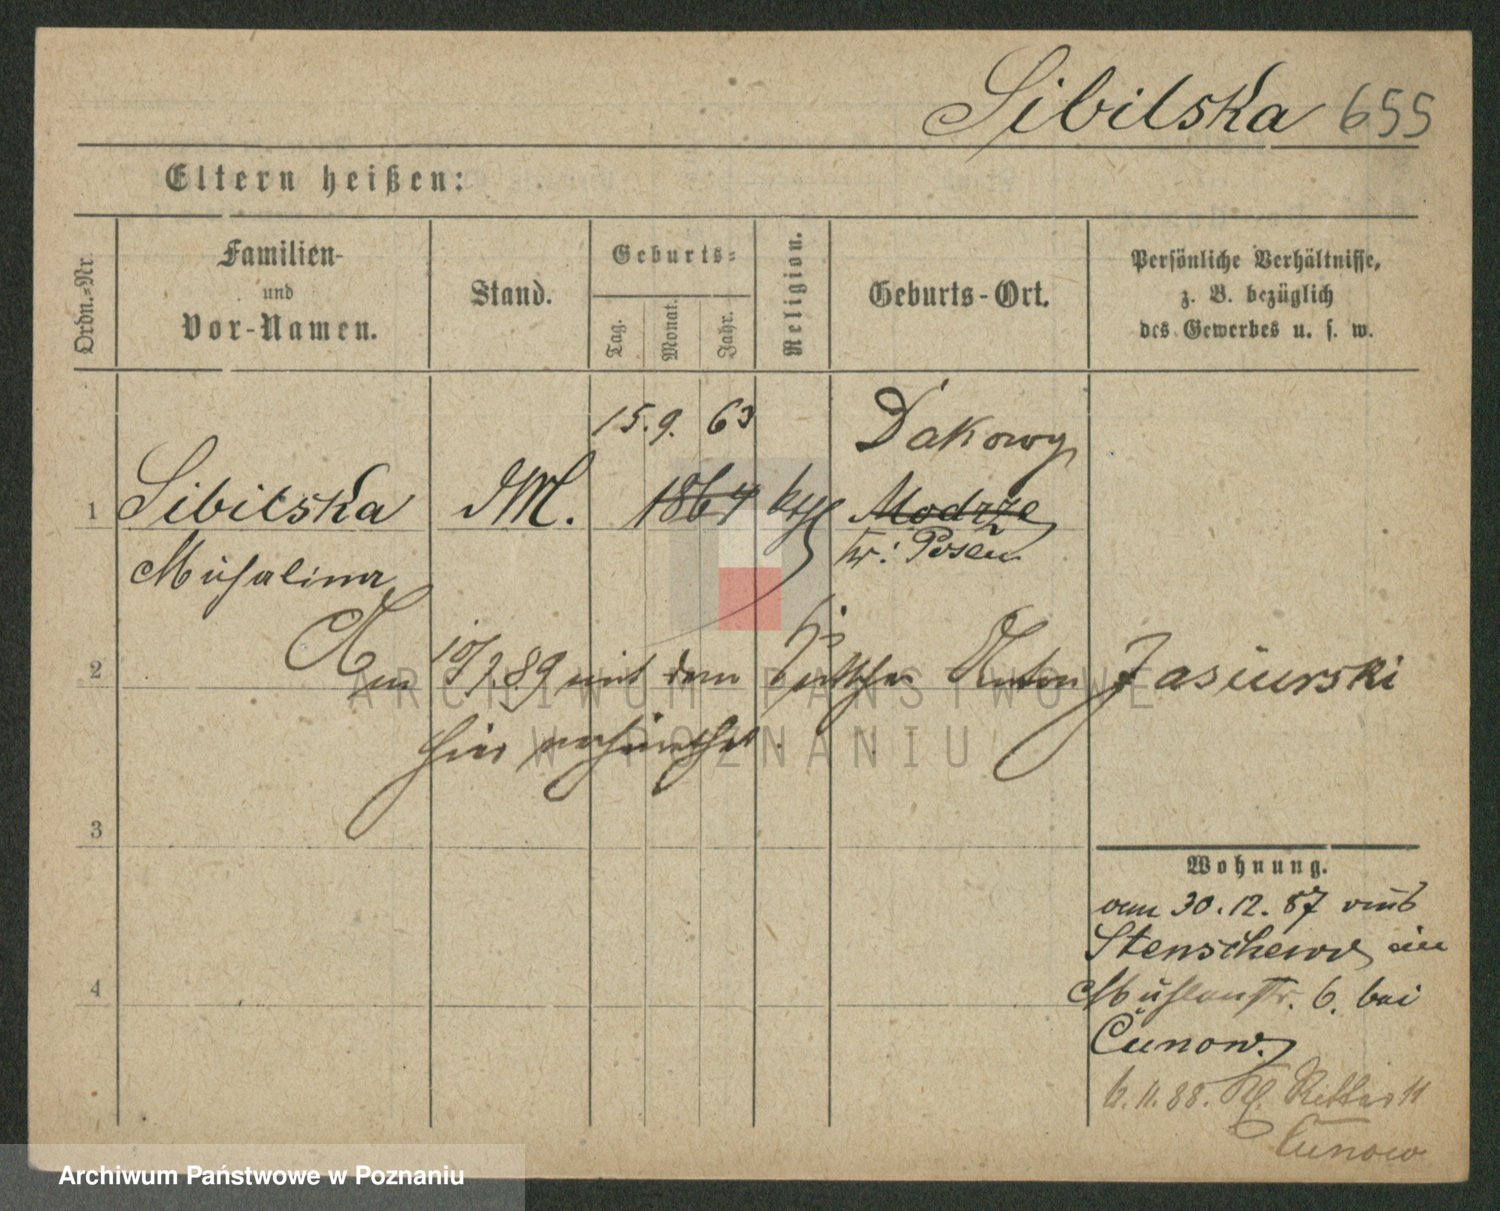 Sibilska 655
Eltern heißen:
Ordn.-Nr.
Familien-
und
Vor-Namen.
Stand.
Geburts-
Tag.
Monat.
Jahr.
Religion.
Geburts-Ort.
Persönliche Verhältnisse,
z. B. bezüglich
des Gewerbes u. s. w.
15. 9. 63 Dakowy
1 Sibilska M. 1864 kth Modrze
Kr: Posen
Michalina
2 Am 10/7.89 mit dem Anton Jasiurski
hier verheirathet.
3
4
Wohnung.
am 30.12.87 aus
Stenschewo in
Mühlenstr. 6. bei
Cunow.
6.11.88. Kl. Ritterstr 11
Cunow
ARCHIWUM PAŃSTWOWE
W POZNANIU
Archiwum Państwowe w Poznaniu